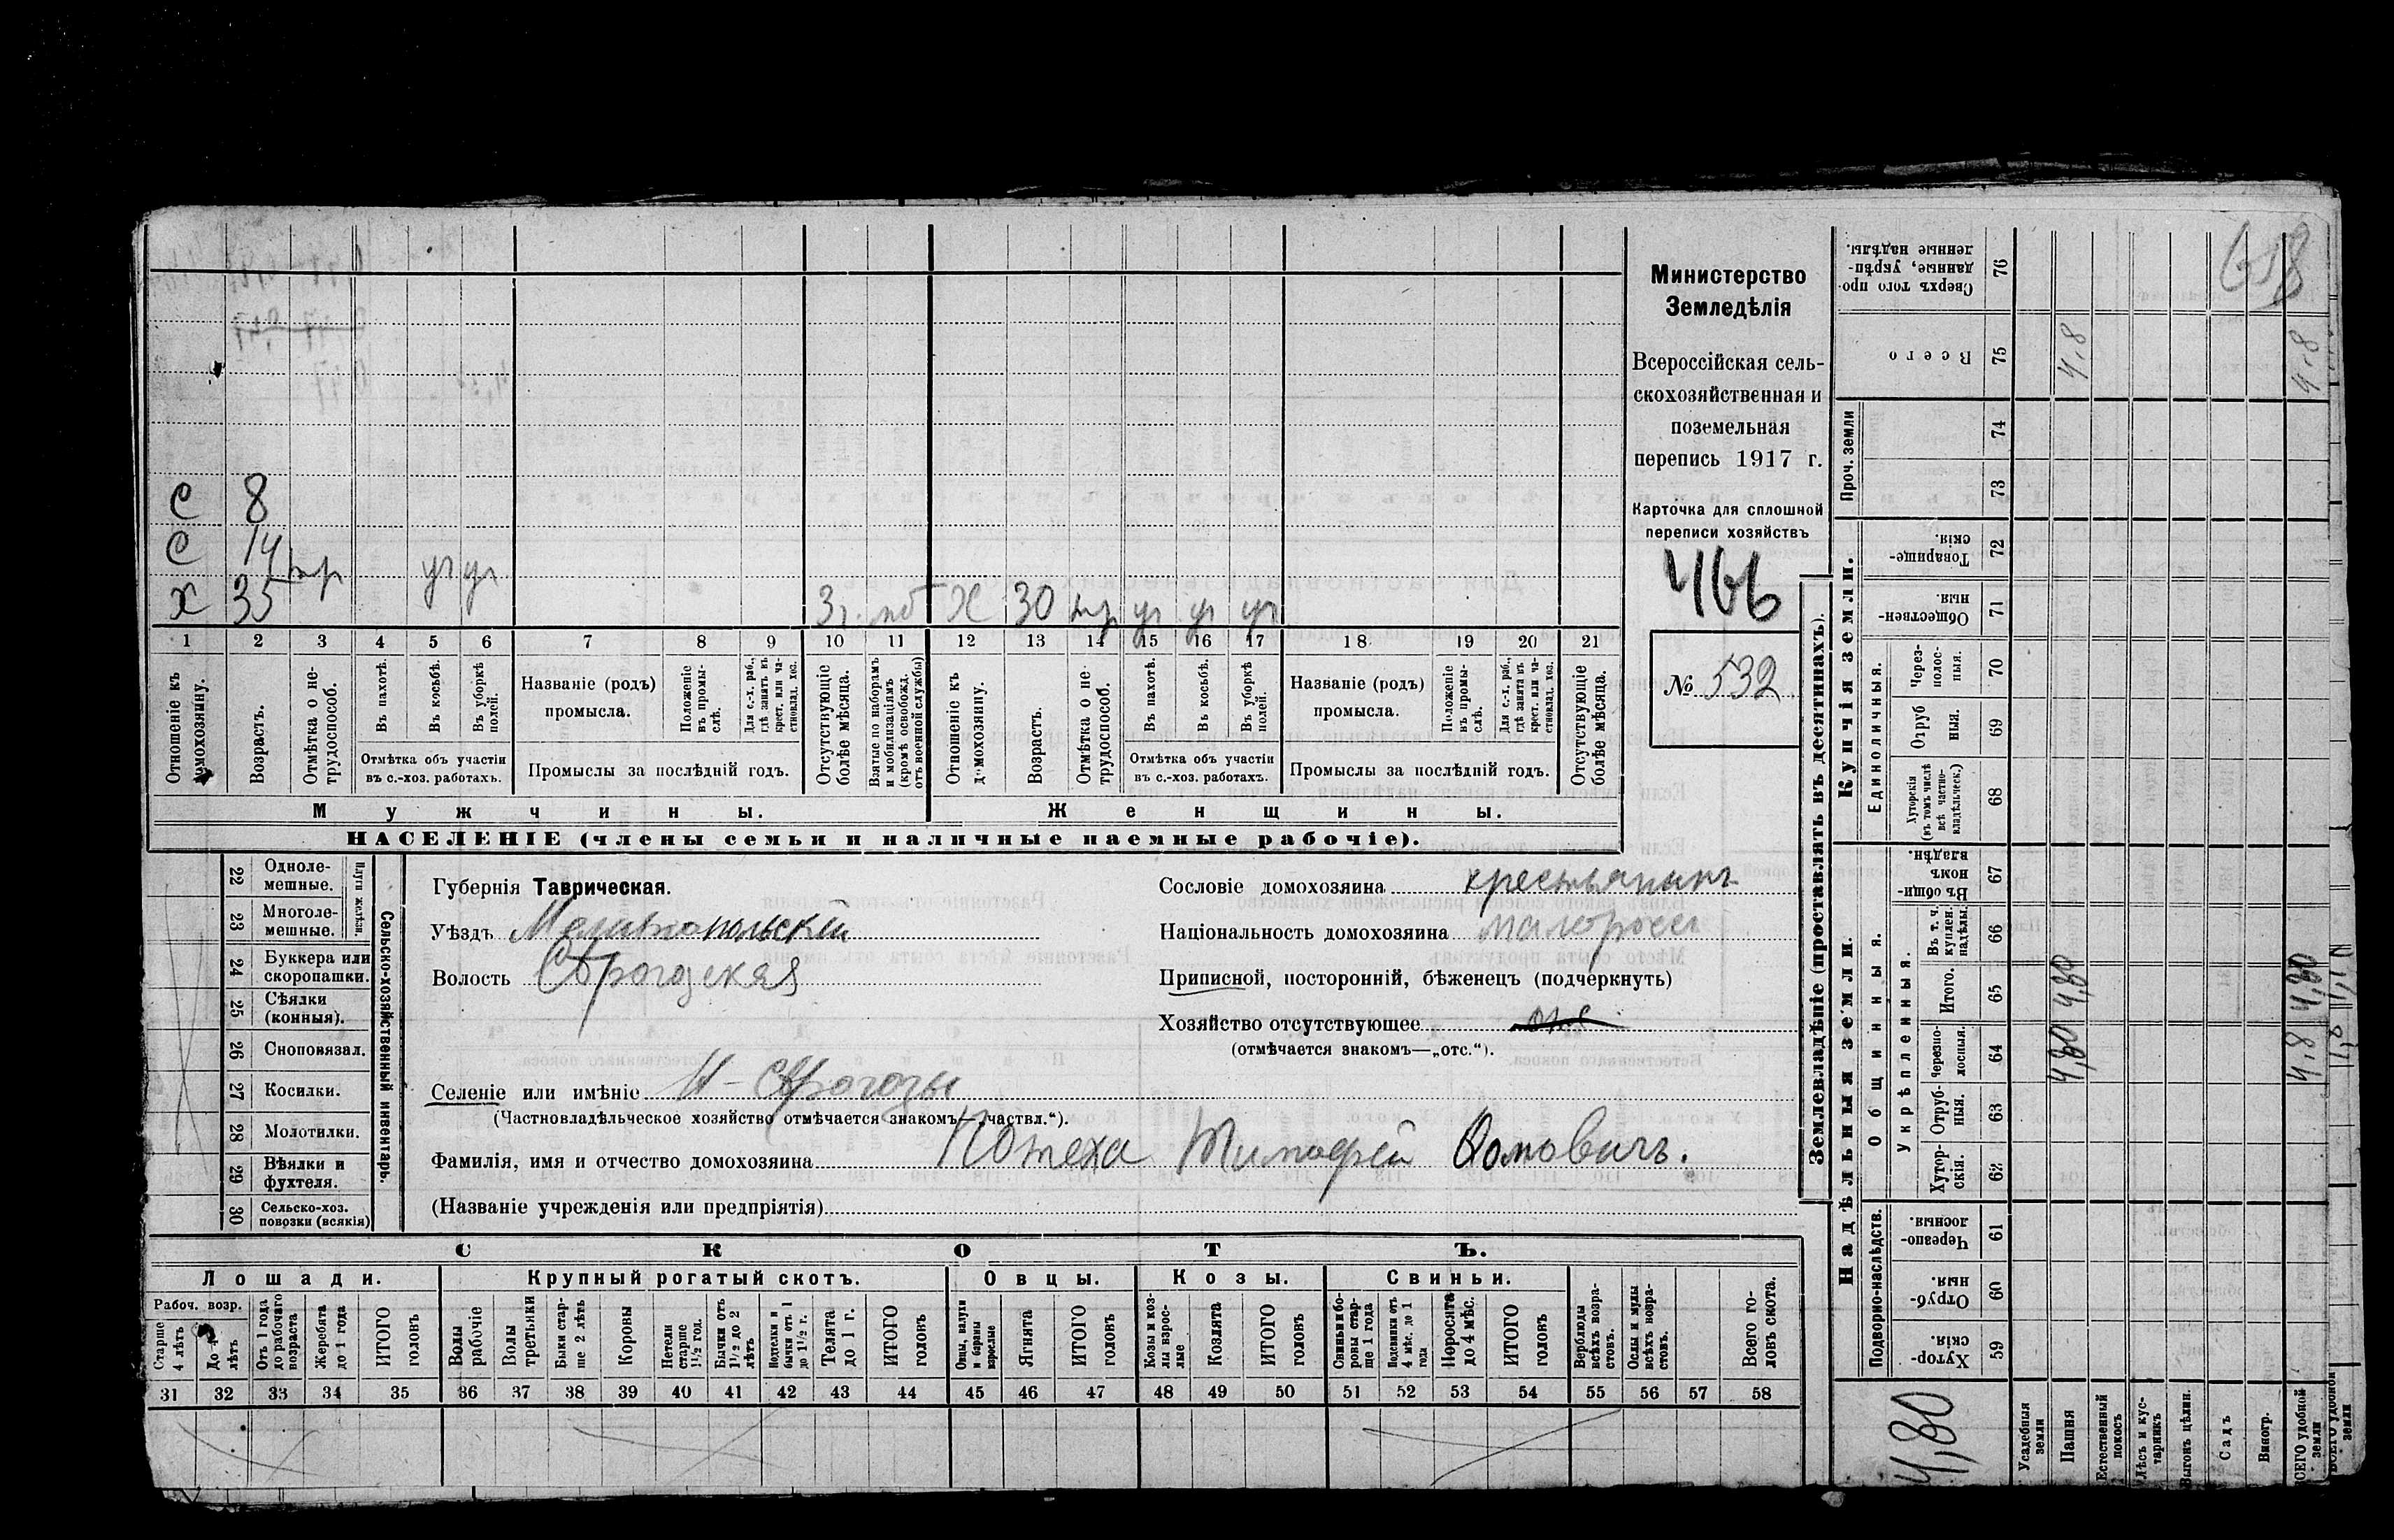 Министерство
Земледѣлія
Всероссійская сель-
скохозяйственная и
поземельная
перепись 1917 г.
Карточка для сплошной
переписи хозяйствъ
466
№ 532
658
С 8
С 14 уч уч
Х 35 Х 30 уч уч уч
1 2 3 4 5 6 7 8 9 10 11 12 13 14 15 16 17 18 19 20 21
Отношеніе къ домохозяину.
Возрастъ.
Отмѣтка о не-трудоспособ.
Въ пахотѣ.
Въ косьбѣ.
Въ уборкѣ полей.
Отмѣтка объ участіи
въ с.-хоз. работахъ.
Названіе (родъ)
промысла.
Положеніе въ промы-слѣ.
Для с.-х. раб., гдѣ занятъ въ крест. или ча-стновлад. хоз.
Промыслы за послѣдній годъ.
Отсутствующіе болѣе мѣсяца.
Взятые по наборамъ и мобилизаціямъ (кромѣ освобожд. отъ военной службы)
Отношеніе къ домохозяину.
Возрастъ.
Отмѣтка о не-трудоспособ.
Въ пахотѣ.
Въ косьбѣ.
Въ уборкѣ полей.
Отмѣтка объ участіи
въ с.-хоз. работахъ.
Названіе (родъ)
промысла.
Положеніе въ промы-слѣ.
Для с.-х. раб., гдѣ занята въ крест. или ча-стновлад. хоз.
Промыслы за послѣдній годъ.
Отсутствующіе болѣе мѣсяца.
Мужчины. Женщины.
НАСЕЛЕНІЕ (члены семьи и наличные наемные рабочіе).
22 Одноле-мешные.
23 Многоле-мешные.
Плуги желѣзн.
24 Буккера или скоропашки.
25 Сѣялки (конныя).
26 Сноповязал.
27 Косилки.
28 Молотилки.
29 Вѣялки и фухтеля.
30 Сельско-хоз. повозки (всякія)
Сельско-хозяйственный инвентарь.
Губернія Таврическая.
Уѣздъ Мелитопольскій
Волость Строгозская
Селеніе или имѣніе Н-Строгозы
(Частновладѣльческое хозяйство отмѣчается знакомъ—„частвл.“).
Фамилія, имя и отчество домохозяина Потеха Тимофей Фомовичъ.
(Названіе учрежденія или предпріятія)
Сословіе домохозяина крестьянинъ
Національность домохозяина малороссъ
Приписной, посторонній, бѣженецъ (подчеркнуть)
Хозяйство отсутствующее отс
(отмѣчается знакомъ—„отс.“).
СКОТЪ.
Лошади. Крупный рогатый скотъ. Овцы. Козы. Свиньи.
Рабоч. возр.
Старше 4 лѣтъ
До 4 лѣтъ
Отъ 1 года до рабочаго возраста
Жеребята до 1 года
ИТОГО головъ
Волы рабочіе
Волы третьяки
Быки стар-ше 2 лѣтъ
Коровы
Нетели старше 1½ год.
Бычки отъ 1½ до 2 лѣтъ
Подтелки и бычки отъ 1 до 1½ г.
Телята до 1 г.
ИТОГО головъ
Овцы, валухи и бараны взрослые
Ягнята
ИТОГО головъ
Козы и коз-лы взрос-лые
Козлята
ИТОГО головъ
Свиньи и бо-ровы стар-ше 1 года
Подсвинки отъ 4 мѣс. до 1 года
Поросята до 4 мѣс.
ИТОГО головъ
Верблюды всѣхъ возра-стовъ.
Ослы и мулы всѣхъ возра-стовъ.
Всего го-ловъ скота.
31 32 33 34 35 36 37 38 39 40 41 42 43 44 45 46 47 48 49 50 51 52 53 54 55 56 57 58
Землевладѣніе (проставлять въ десятинахъ).
Надѣльныя земли. Купчія земли. Проч. земли
Подворно-наслѣдств. Общинныя. Единоличныя.
Укрѣпленныя.
59 Хутор-скія.
60 Отруб-ныя.
61 Черезпо-лосныя.
62 Хутор-скія.
63 Отруб-ныя.
64 Черезпо-лосныя.
65 Итого.
66 Въ т. ч. куплен. надѣлы.
67 Въ общин-номъ владѣн.
68 Хуторскія (въ томъ числѣ всѣ частно-владѣльческ.)
69 Отруб ныя.
70 Через-полос-ныя.
71 Обществен-ныя.
72 Товарище-скія.
73
74
75 Всего
76 Сверхъ того про-данные, укрѣп-ленные надѣлы.
4,80
Усадебныя земли
Пашня 4,80 4,80 4,8
Естественный покосъ
Лѣсъ и кус-тарникъ
Выгонъ цѣлин.
Садъ
Виногр.
ВСЕГО удобной земли 4,8 4,80 4,8